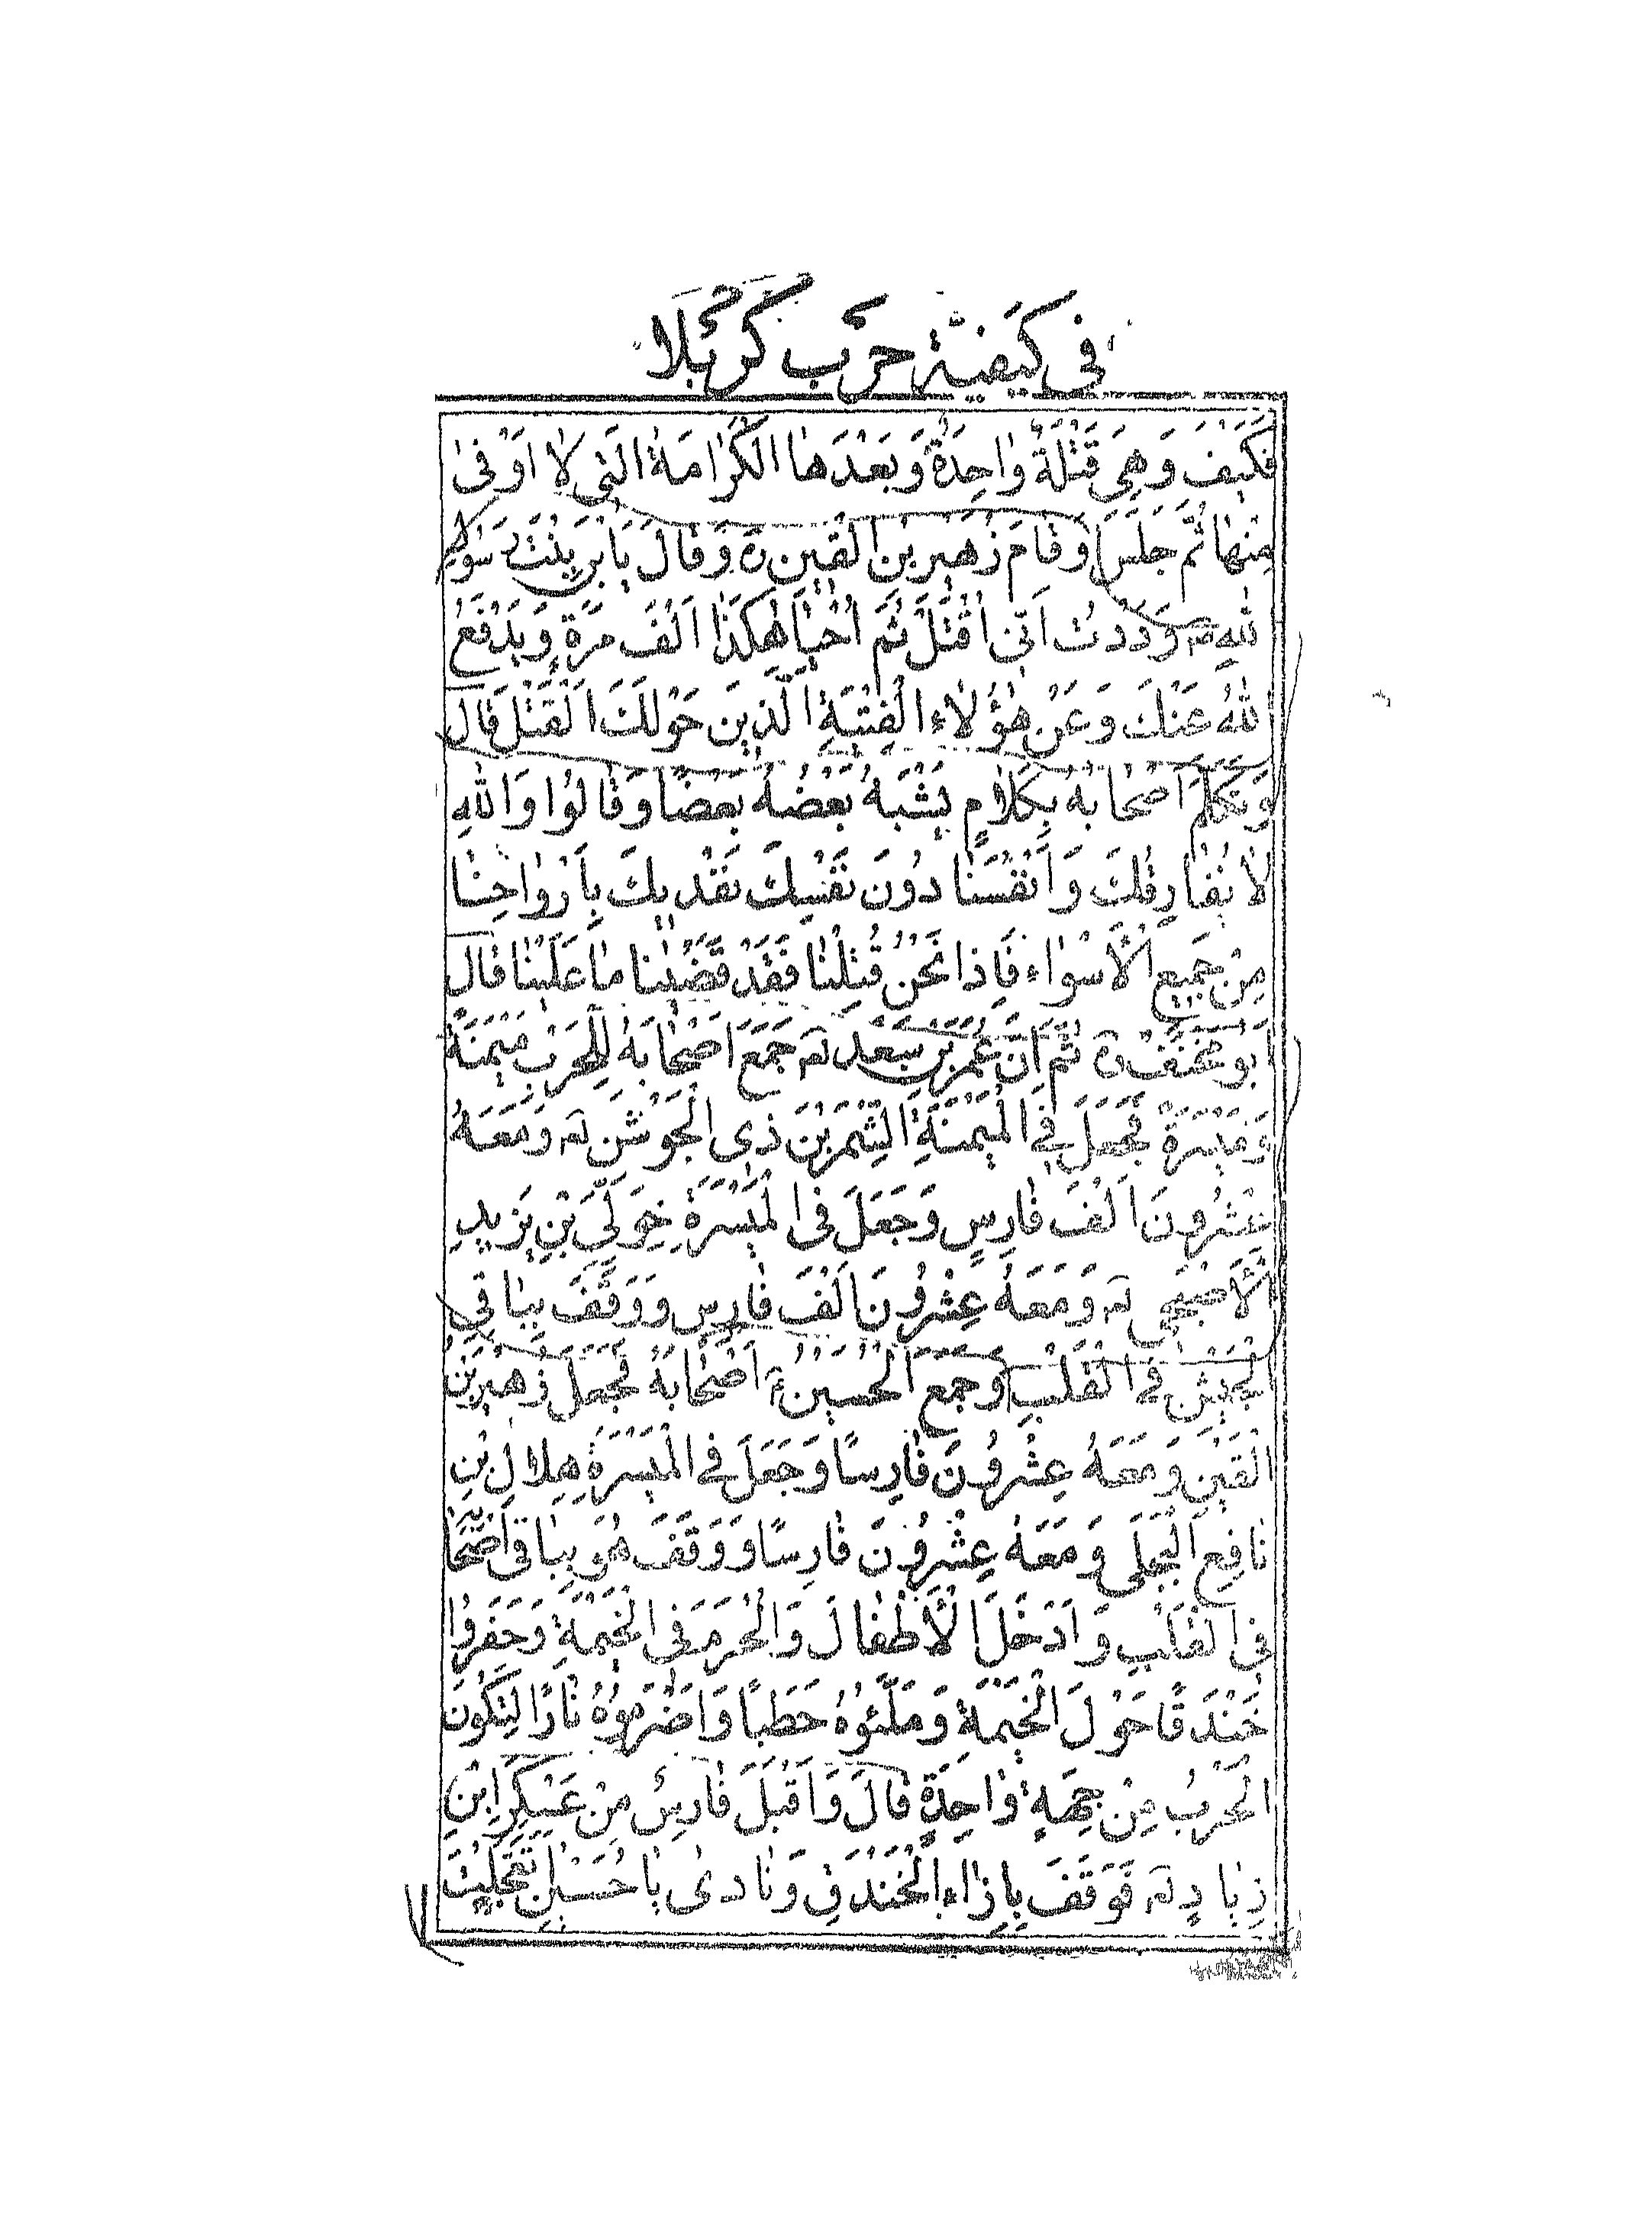 فی کیفیّة حرب کربلا
فَكَيْفَ وَهِيَ قَتْلَةٌ وٰاحِدَةٌ وَبَعْدَهٰا الْكَرٰامَةُ الَّتِی لٰا اَوْفىٰ
مِنْهٰا ثُمَّ جَلَسَ وَقٰامَ زُهَيْرُ بْنُ الْقَيْنِ ره وَقٰالَ يَابْنَ بِنْتِ رَسُولِ
اللهِ ص وَدَدْتُ اَنّی اُقْتَلُ ثُمَّ اُحْيٰا هٰكَذٰا اَلْفَ مَرَّةٍ وَيَدْفَعُ
اللهُ عَنْكَ وَعَنْ هٰؤُلٰاءِ الْفِتْيَةِ الَّذينَ حَوْلَكَ الْقَتْلَ قٰالَ
وَتَكَلَّمَ اَصْحٰابُهُ بِكَلٰامٍ يَشْبَهُ بَعْضُهُ بَعْضًا وَقٰالُوا وَاللهِ
لٰا نُفٰارِقُكَ وَاَنْفُسَنٰا دُونَ نَفْسِكَ نَفْديكَ بِاَرْوٰاحِنٰا
مِنْ جَميعِ الْاَسْوٰاءِ فَاِذا نَحْنُ قُتِلْنٰا فَقَدْ قَضَيْنا مٰا عَلَيْنٰا قٰالَ
اَبُو مِخْنَفٍ ره ثُمَّ اِنَّ عُمَرَ بْنَ سَعْدٍ لَه جَمَعَ اَصْحٰابَهُ لِلْحَرْبِ مَيْمَنَةً
وَمَيْسَرَةً فَجَعَلَ فِي الْمَيْمَنَةِ الشِّمْرَ بْنَ ذِی الْجَوْشَنِ لَه وَمَعَهُ
عِشْرُونَ اَلْفَ فٰارِسٍ وَجَعَلَ فی الْمَيْسَرَةِ خِوَلّیَ بْنِ يَزيدِ
الْاَصْبَحِی لَه وَمَعَهُ عِشْرُونَ اَلْفَ فٰارِسٍ وَوَقَفَ بِبٰاقِی
الْجَيْشِ فِي الْقَلْبِ وَجَمَعَ الْحُسَيْنُ ع اَصْحٰابَهُ فَجَعَلَ زُهَيْرَ بْنَ
الْقَيْنِ وَمَعَهُ عِشْرُونَ فٰارِسًا وَجَعَلَ فِي الْمَيْسَرَةِ هِلالِ بْنِ
نٰافِعِ الْبَجَلی وَمَعَهُ عِشْرُونَ فٰارِسًا وَوَقَفَ هُوَ بِبٰاقی اَصْحٰا
فِی الْقَلْبِ وَاَدْخَلَ الْاَطْفٰالَ وَالْحُرَمَ فی الْخَيْمَةِ وَحَفَرُوا
خَنْدَقًا حَوْلَ الْخَيْمَةِ وَمَلَئُوهُ حَطَبًا وَاَضْرَمُوهُ نٰارًا لِتَكُونَ
الْحَرْبُ مِنْ جِهَةٍ وٰاحِدَةٍ قٰالَ وَاَقْبَلَ فٰارِسٌ مِنْ عَسْكِرِ ابْنِ
زِيٰادٍ لَه فَوَقَفَ بِاِزٰاءِ الْخَنْدَقِ وَنٰادىٰ يٰا حُسَيْنِ تَعَجَّلْتَ